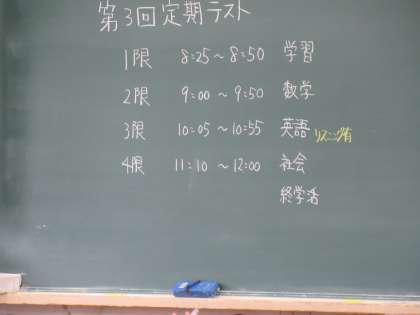 第3回定期テスト
1限 8:25～8:50 学習
2限 9:00～9:50 数学
3限 10:05～10:55 英語 リスニング有
4限 11:10～12:00 社会
終学活